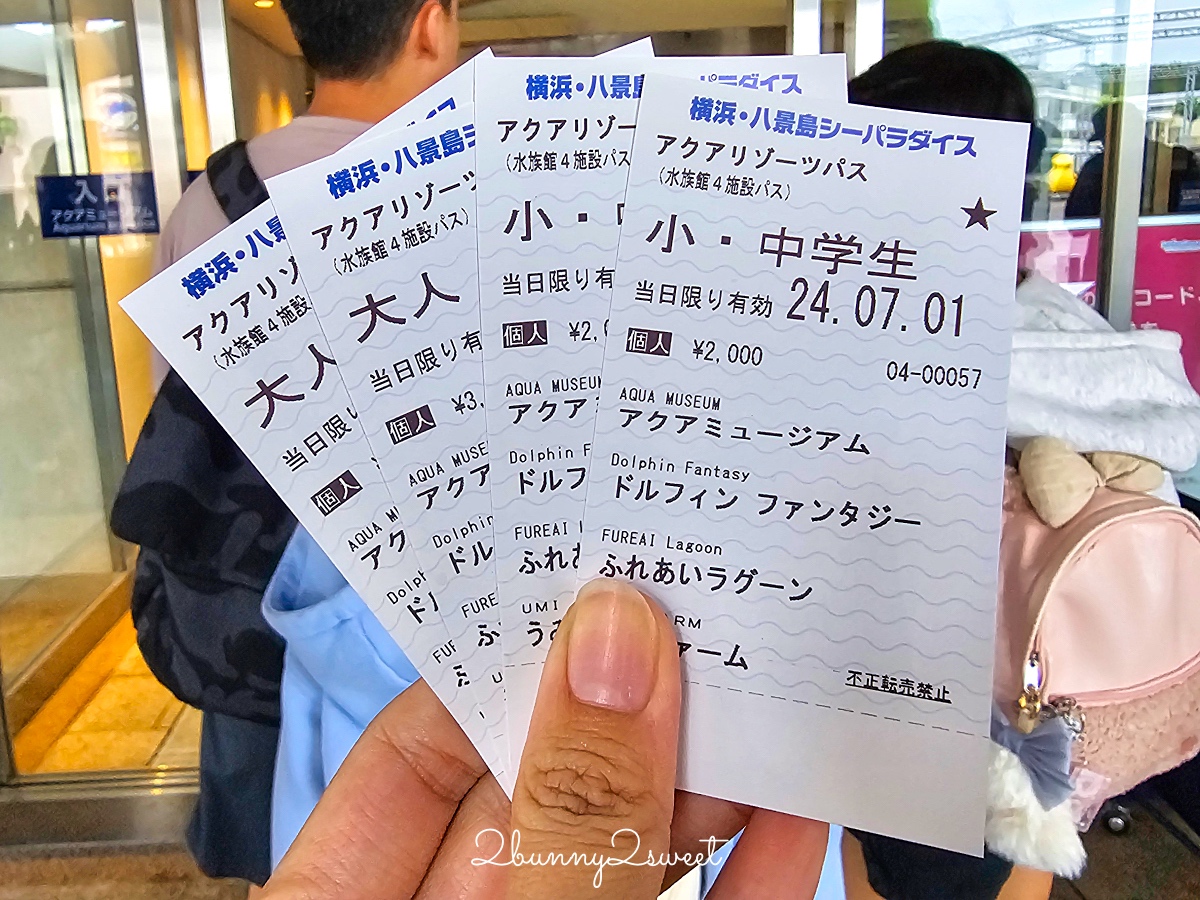 横浜・八景
アクアリゾ
(水族館4施設
大人
当日限り
個人
AQUA M
アク
Dolph
ドル
FUR
横浜・八景島シ
アクアリゾーツ
(水族館4施設パス)
大人
当日限り有
個人 ¥3,
AQUA MUSE
アクア
Dolphin
ドル
FURE
ふ
横浜・八景島
アクアリゾー
(水族館4施設パス
小・中
当日限り有
個人 ¥2,
AQUA MUSEUM
アクア
Dolphin F
ドルフ
FUREAI
ふれあ
UMI
うみ
パラダイス
横浜・八景島シーパラダイス
アクアリゾーツパス
(水族館4施設パス)
★
小・中学生
当日限り有効 24.07.01
個人 ¥2,000
04-00057
AQUA MUSEUM
アクアミュージアム
Dolphin Fantasy
ドルフィン ファンタジー
FUREAI Lagoon
ふれあいラグーン
ARM
ァーム
不正転売禁止
入
アクアミュージアム
コード
2bunny2sweet